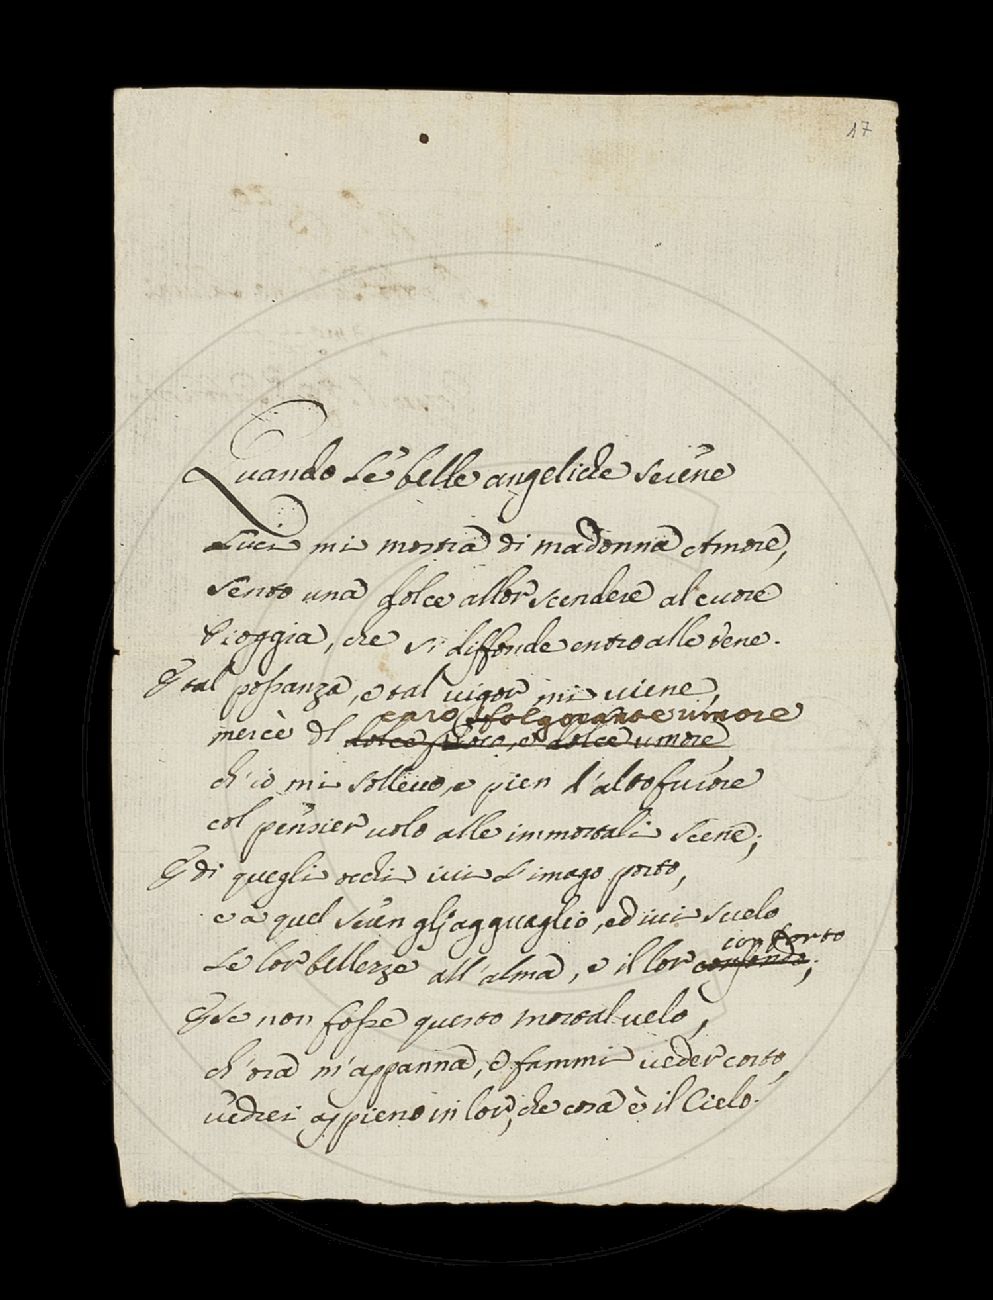 17
Quando le belle angeliche serene
Luci mi mostra di madonna Amore,
Sento una dolce allor scendere al cuore
Pioggia, che si diffonde entro alle vene.
E tal possanza, e tal vigor mi viene,
caro, sfolgorante umore
mercè del dolce fuoco, e dolce umore
ch'io mi sollevo, e pien d'alto furore
col pensier volo alle immortali scene;
E di quegli occhi ivi l'imago porto,
e a quel seren gli agguaglio, ed ivi svelo
Le lor bellezze all'alma, e il lor conforto
E se non fosse questo mortal velo,
ch'ora m'appanna, e fammi veder corto,
vedrei appieno in lor, che cosa è il Cielo.